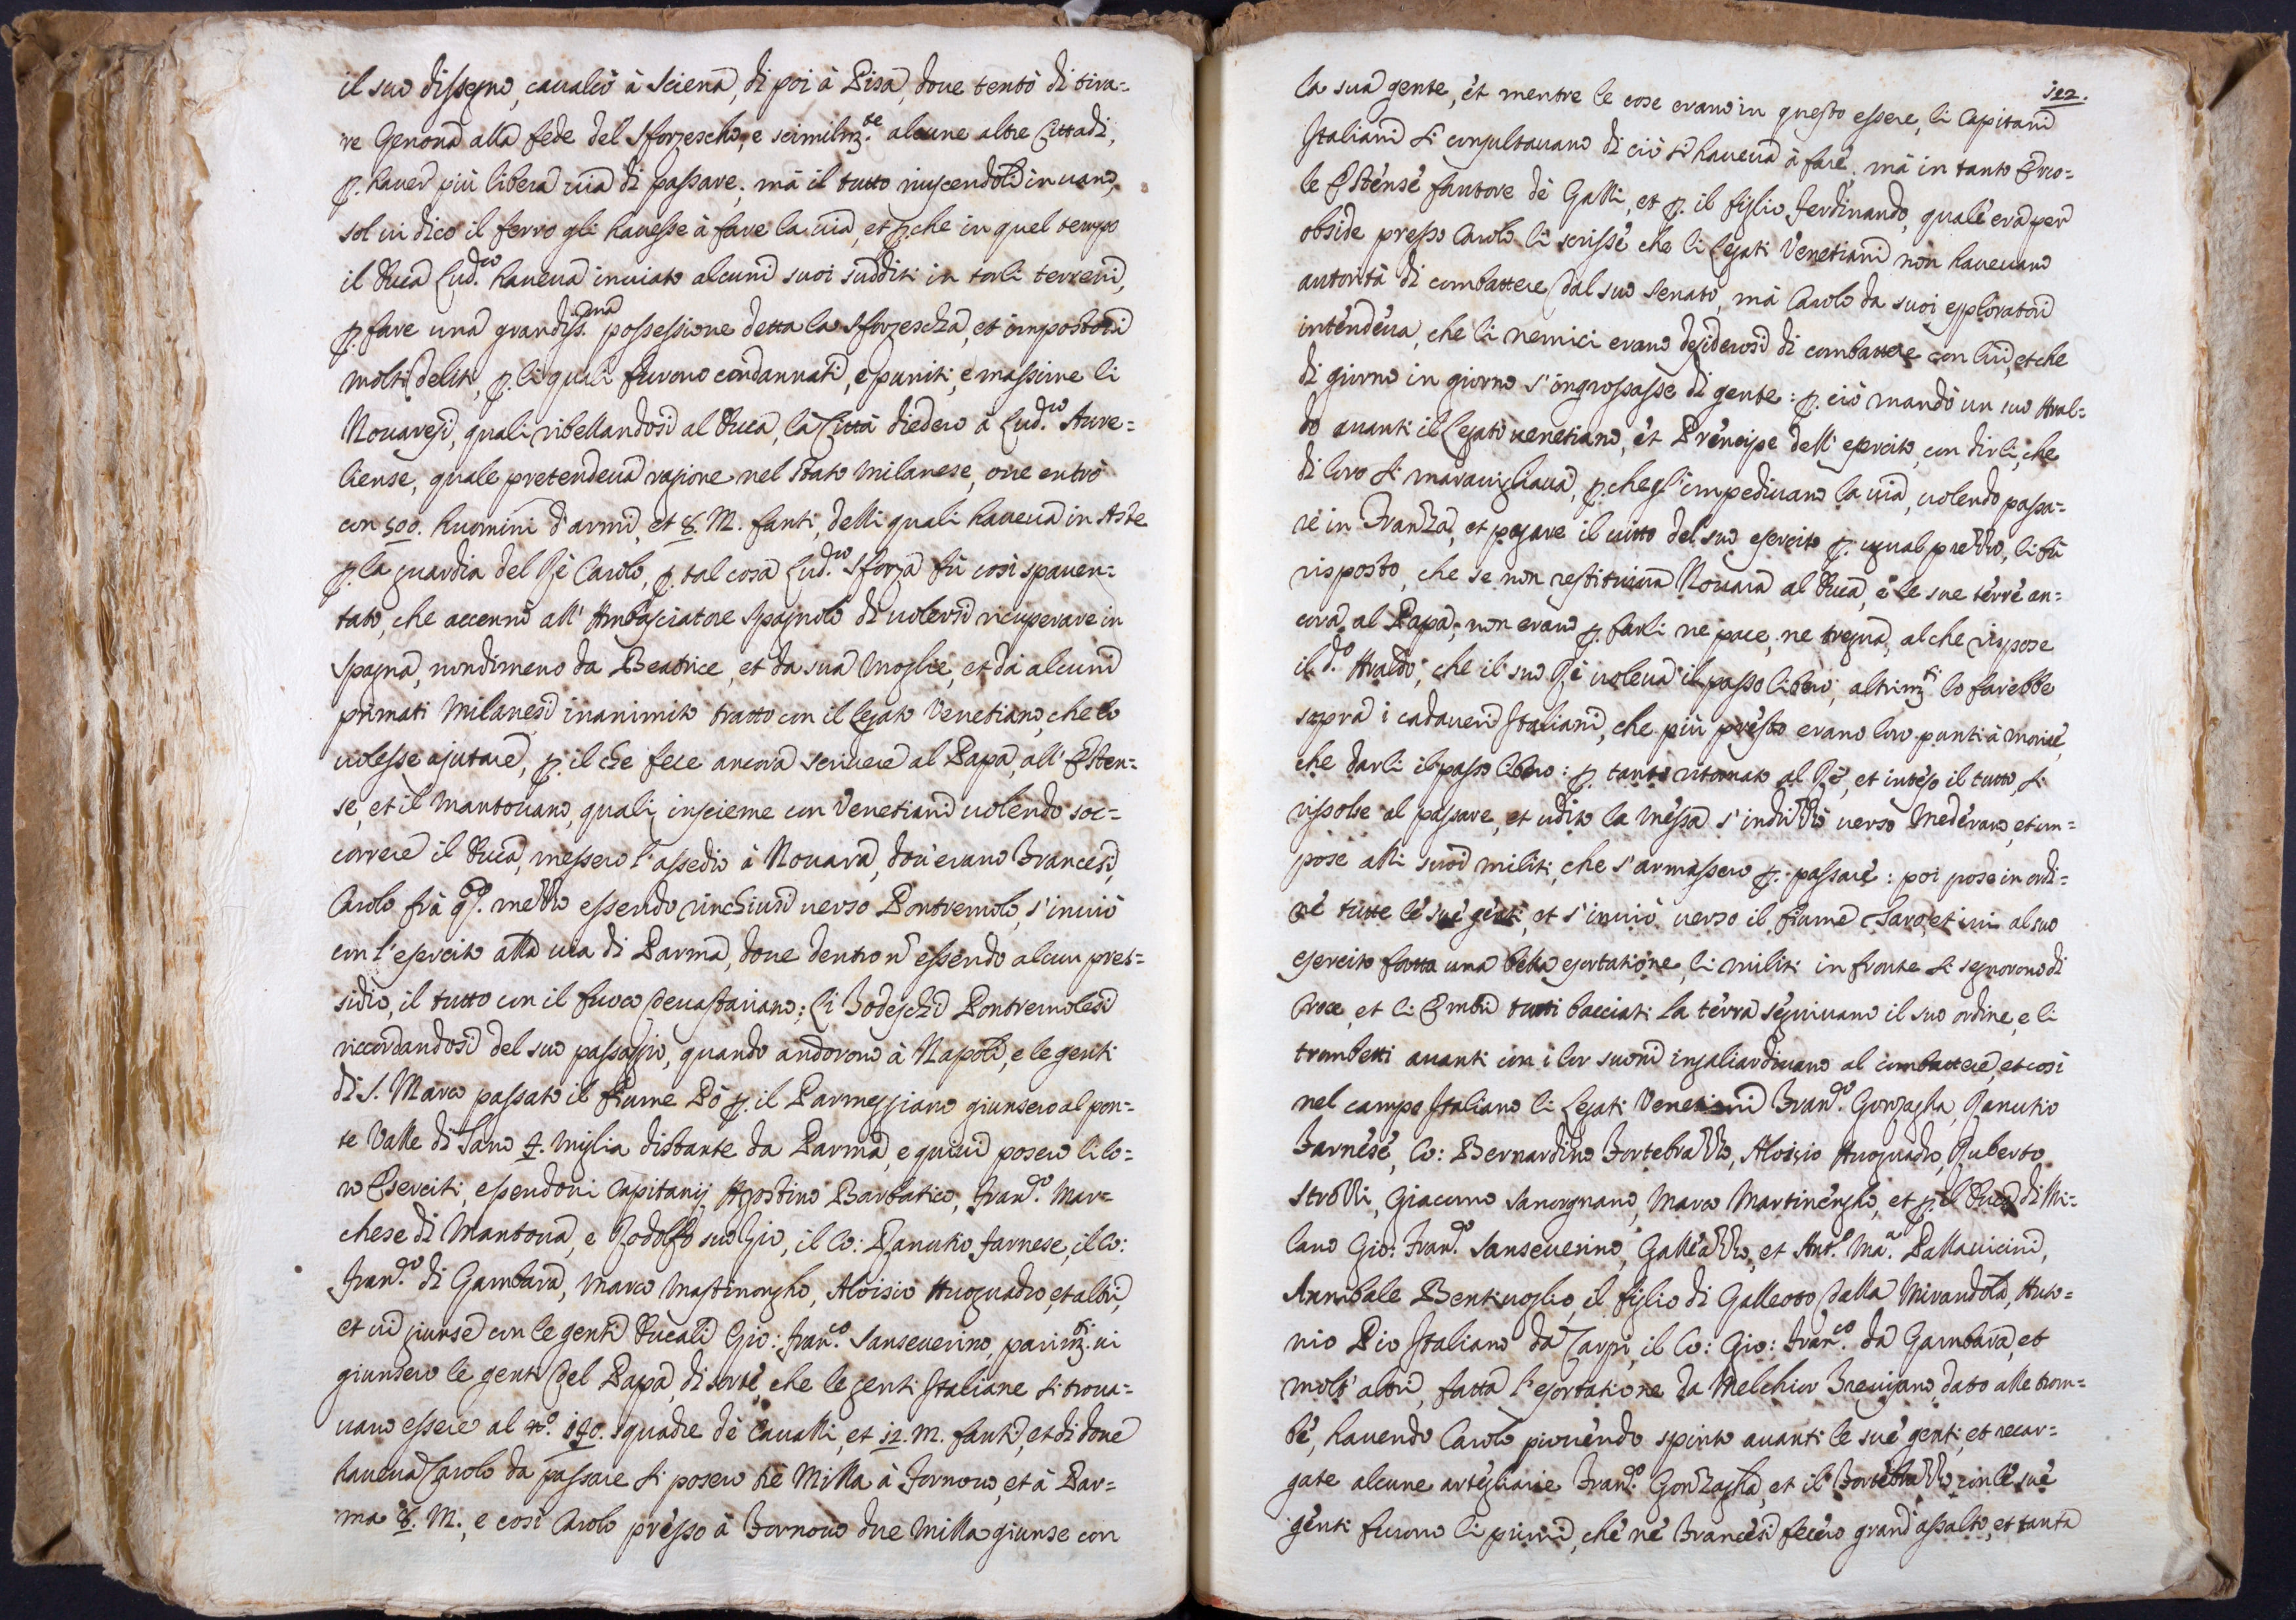 il suo dissegno, caualcò à Sciena, di poi à Pisa, doue tentò di tira=
re Genoua alla fede del Sforzescho, e scimilm.te alcune altre Cittadi,
p. hauer più libera uia di passare, mà il tutto riuscendoli in uano,
sol ui dico il ferro gli hauesse à fare la uia, et p.che in quel tempo
il Duca Lud.co haueua inuiato alcuni suoi sudditi in torli terreni,
p. fare una grandiss.ma possessione detta la Sforzescha, et impostorsi
molti delit, p. li quali furono condannati, e puniti, e massime li
Nouaresi, quali ribellandosi al Duca, la Città diedero à Lud.co Aure=
liense, quale pretendeua ragione nel Stato Milanese, oue entrò
con 500. huomini d'armi, et 8. M. fanti, delli quali haueua in Aste
p. la guardia del Rè Carolo, p. tal cosa Lud.co Sforza fù così spauen=
tato, che accennò all' Ambasciatore Spagnolo di uolersi ricuperare in
Spagna, nondimeno da Beatrice, et da sua Moglie, et da alcuni
primati Milanesi inanimito trattò con il Legato Venetiano, che lo
uolesse ajutare, p. il che fece ancora scriuere al Papa, all' Esten=
se, et il Mantouano, quali insieme con Venetiani uolendo soc=
correre il Duca, messero l'assedio à Nouara, dou'erano Francesi,
Carolo frà q.o mezzo essendo rinchiusi uerso Pontremolo, s'inuiò
con l'esercito alla uia di Parma, doue dentro n essendo alcun pres=
sidio, il tutto con il fuoco deuastauano; li Todeschi Pontremolesi
riccordandosi del suo passaggio, quando andorono à Napoli, e le genti
di S. Marco passato il fiume Pò p. il Parmeggiano giunsero al pon=
te Valle di Taro 4. miglia distante da Parma, e quiui posero li lo=
ro Eserciti, essendoui Capitanij Agostino Barbatico, Fran.co Mar=
chese di Mantoua, e Rodolfo suo Zio, il Co: Ranutio Farnese, il Co:
Fran.co di Gambara, Marco Mastinongho, Aloisio Auoguadro, et altri,
et ui giunse con le genti Ducali Gio: Fran.co Sanseuerino, parim.ti ui
giunsero le genti del Papa, di sorte, che le genti Italiane si troua=
uano essere al n.o 140. squadre dè Caualli, et 12. M. fanti, et di doue
haueua Carolo da passare si posero trè Milla à Fornouo, et à Par=
ma 8. M., e così Carolo presso à Fornouo due Milla giunse con
122.
la sua gente, et mentre le cose erano in questo essere, li Capitani
Italiani si consultauano di ciò si haueua à fare, mà in tanto Erco=
le Estense fautore dè Galli, et p. il figlio Ferdinando, quale era per
obside presso Carolo li scrisse che li Legati Venetiani non haueuano
autorità di combattere dal suo Senato, mà Carolo da suoi esploratori
intendeua, che li nemici erano desiderosi di combattere con lui, et che
di giorno in giorno s'ingrossasse di gente: p. ciò mandò un suo Aral=
do auanti il Legati uenetiano, et Prencipe dell' esercito, con dirli, che
di loro si marauigliaua, p. che gl'impediuano la uia, uolendo passa=
re in Franza, et pagare il uitto del suo esercito p. ugual prezzo, li fù
risposto, che se non restituiua Nouara al Duca, e le sue terre an=
cora al Papa, non erano p. farli ne pace, ne tregua, al che rispose
il d.o Araldo, che il suo Rè uoleua il passo libero, altrim.ti lo farebbe
sopra i cadaueri Italiani, che più presto erano loro pronti à morire,
che darli il passo libero: p. tanto ritornato al Rè, et inteso il tutto, si
rissolse al passare, et udito la messa s'indrizzò uerso Mederano, et im=
pose alli suoi militi, che s'armassero p. passare: poi pose in ordi=
ne tutte le sue genti, et s'inuiò uerso il fiume Taro, et iui al suo
esercito fatta una bella esortatione, li militi in fronte si segnorono di
Croce, et li tutti bacciati la terra seguiuano il suo ordine, e li
trombetti auanti con i lor suoni ingaliardiuano al combattere, et così
nel campo Italiano li Legati Venetiani Fran.co Gonzagha, Ranutio
Farnese, Co: Bernardino Fortebrazzo, Aloisio Auoguadro, Ruberto
Strozzi, Giacomo Sauorgnano, Marco Martinengho, et p. il Duca di Mi=
lano Gio: Fran.co Sanseuerino, Galleazzo, et Ant.o Ma.a Pallauicini,
Annibale Bentiuoglio, il figlio di Galleotto dalla Mirandola, Anto=
nio Pio Italiano da Carpi, il Co: Gio: Fran.co da Gambara, et
molt' altri, fatta l'esortatione da Melchior Treuigiano, dato alle trom=
be, hauendo Carolo piouendo spinto auanti le sue genti, et recar=
gate alcune artegliarie Fran.co Gonzagha, et il Fortebrazzo con le sue
genti furono li primi, che nè Francesi fecero grand' assalto, et tanta